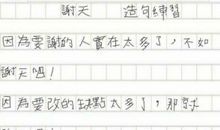 謝天 造句練習
因為要謝的人實在太多了,不如
謝天吧!
因為要改的缺點太多了,那就